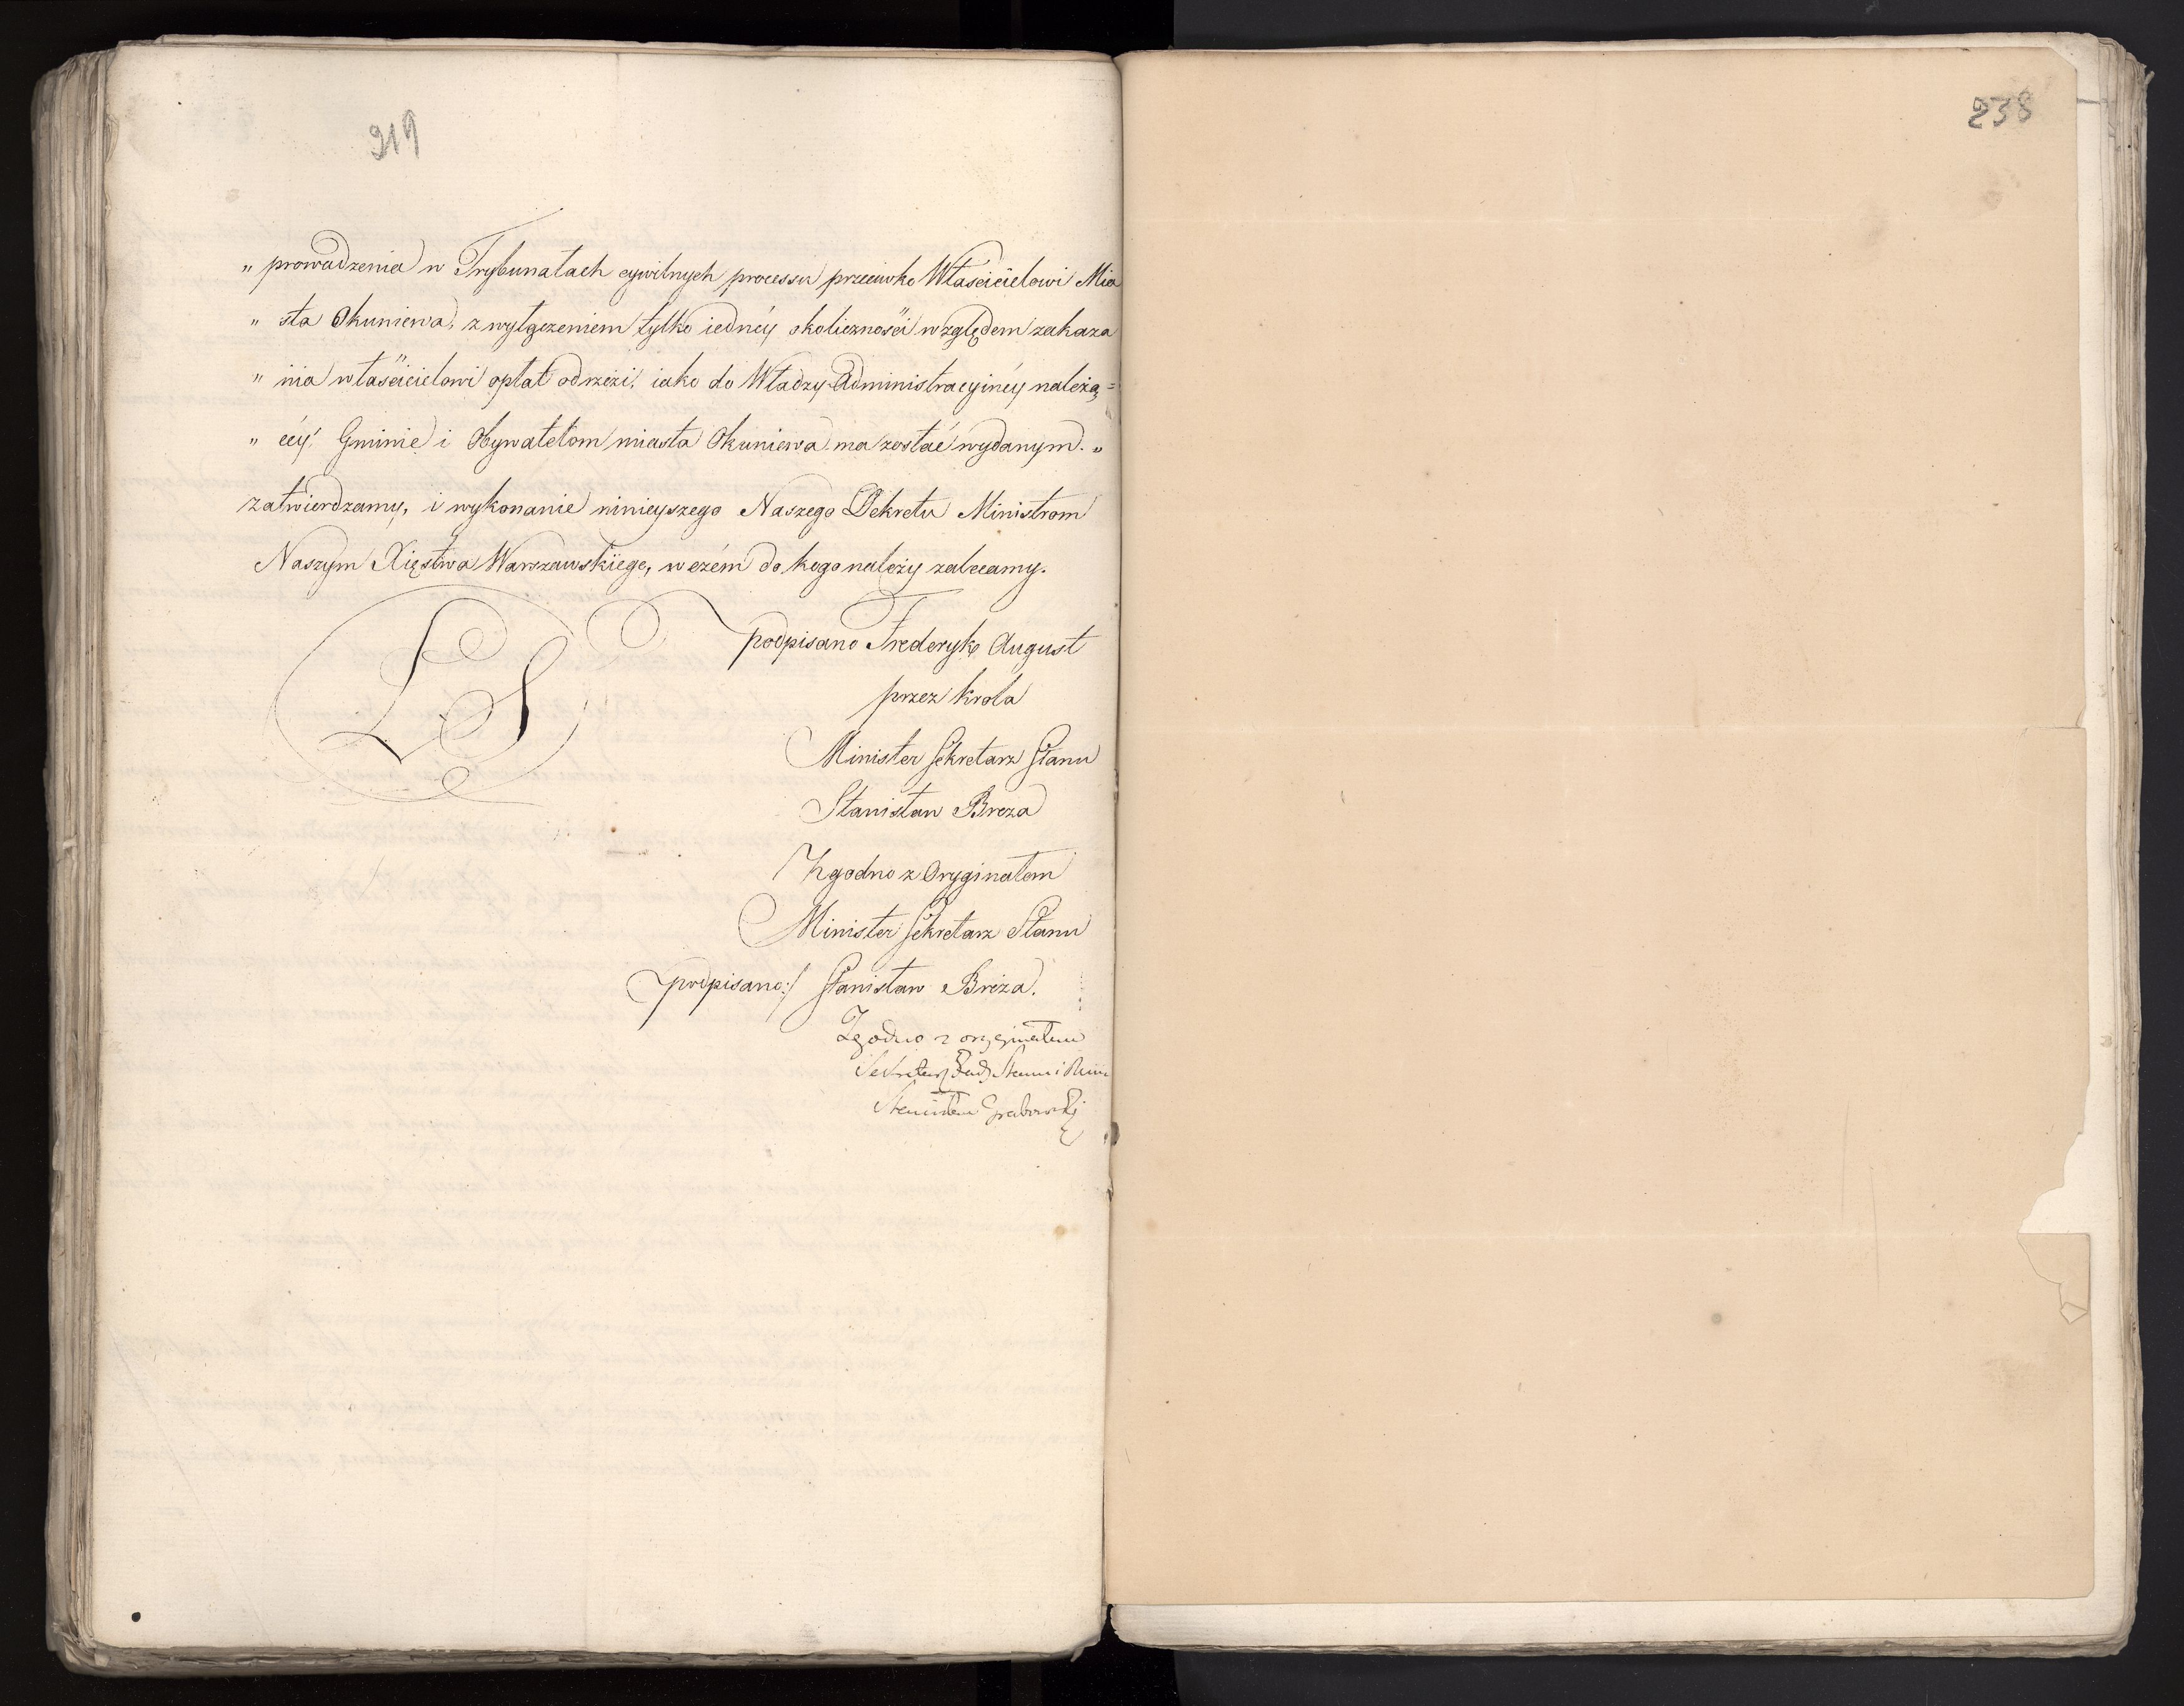 919
„ prowadzenia w Trybunałach cywilnych processu przeciwko Właścicielowi Mia
„ sta Okuniewa, z wyłączeniem tylko iednéy okoliczności względem zakaza
„ nia właścicielowi opłat od rzezi, iako do Władzy Administracyinéy należą=
„ céy, Gminie i Obywatelom miasta Okuniewa ma zostać wydanym. „
zatwierdzamy, i wykonanie ninieyszego Naszego Dekretu Ministrom
Naszym Xięstwa Warszawskiego, w czém do kogo należy zalecamy.
LS
podpisano Frederyk August
przez króla
Minister Sekretarz Stanu
Stanisław Breza
Zgodno z Oryginałem
Minister Sekretarz Stanu
podpisano:/ Stanisław Breza.
Zgodno z oryginałem
Sekretarz Rady Stanu i Mini
Stanisław Grabowski
238